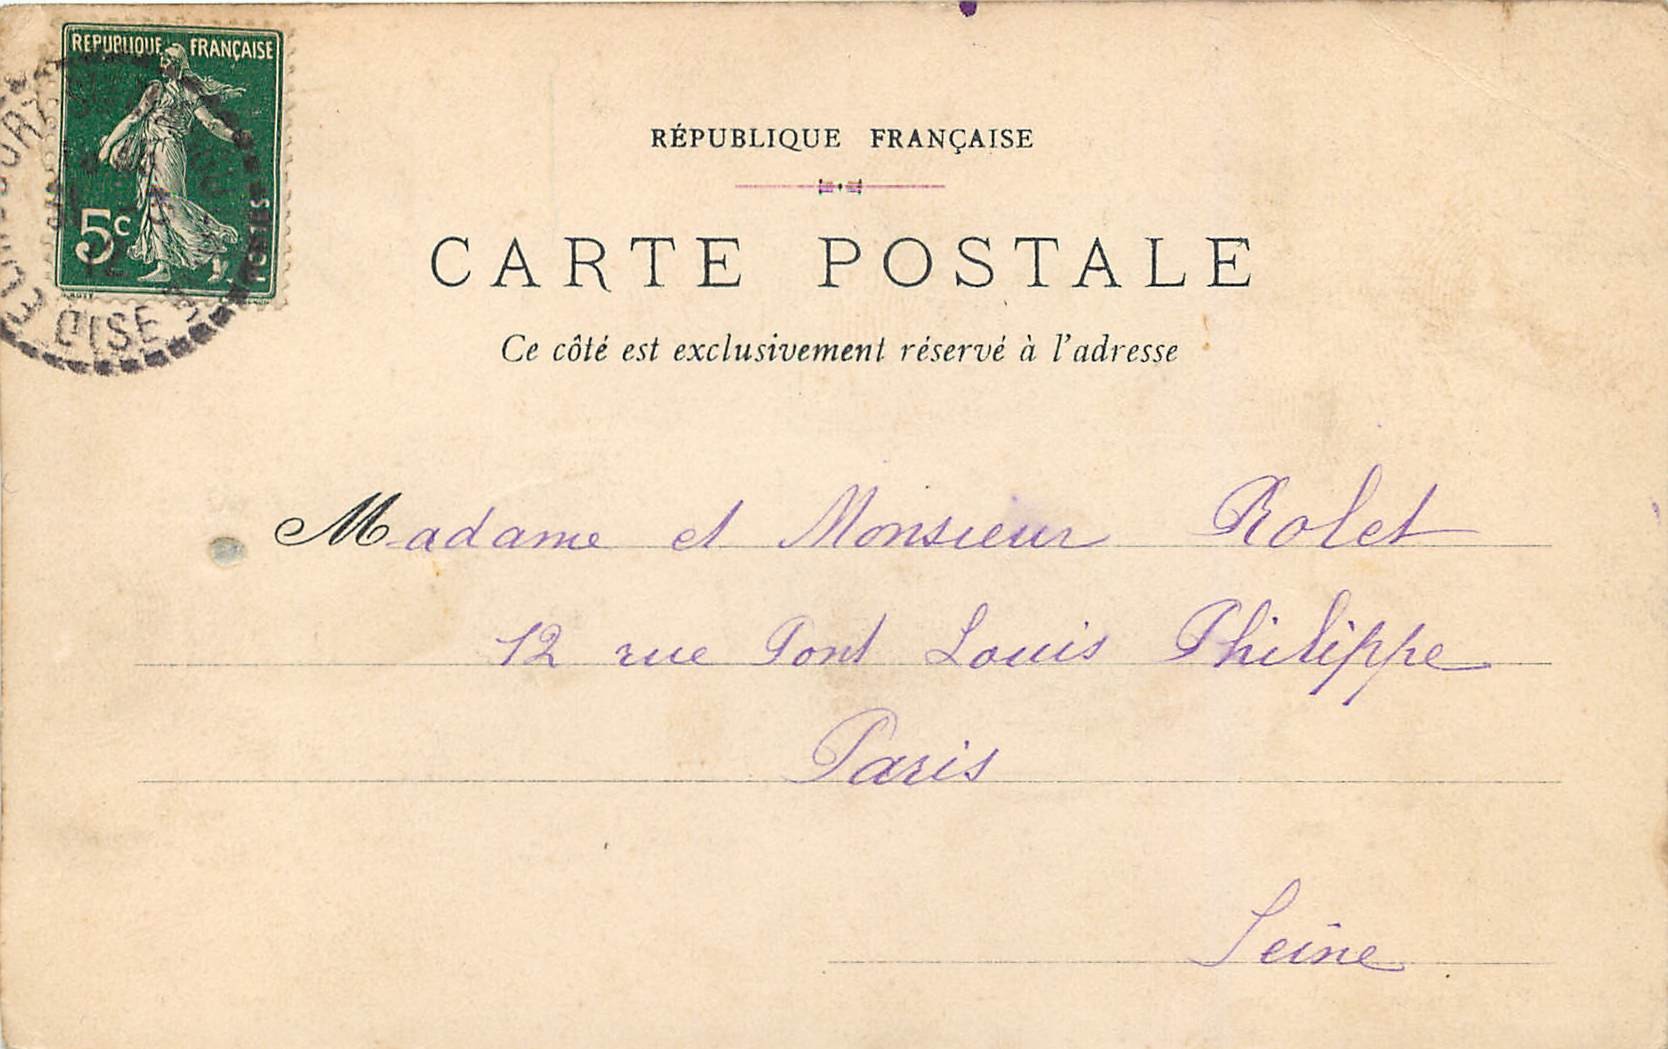 REPUBLIQUE FRANÇAISE
5c
POSTES
OISE
RÉPUBLIQUE FRANÇAISE
CARTE POSTALE
Ce côté est exclusivement réservé à l'adresse
Madame et Monsieur Rolet
12 rue Pont Louis Philippe
Paris
Seine